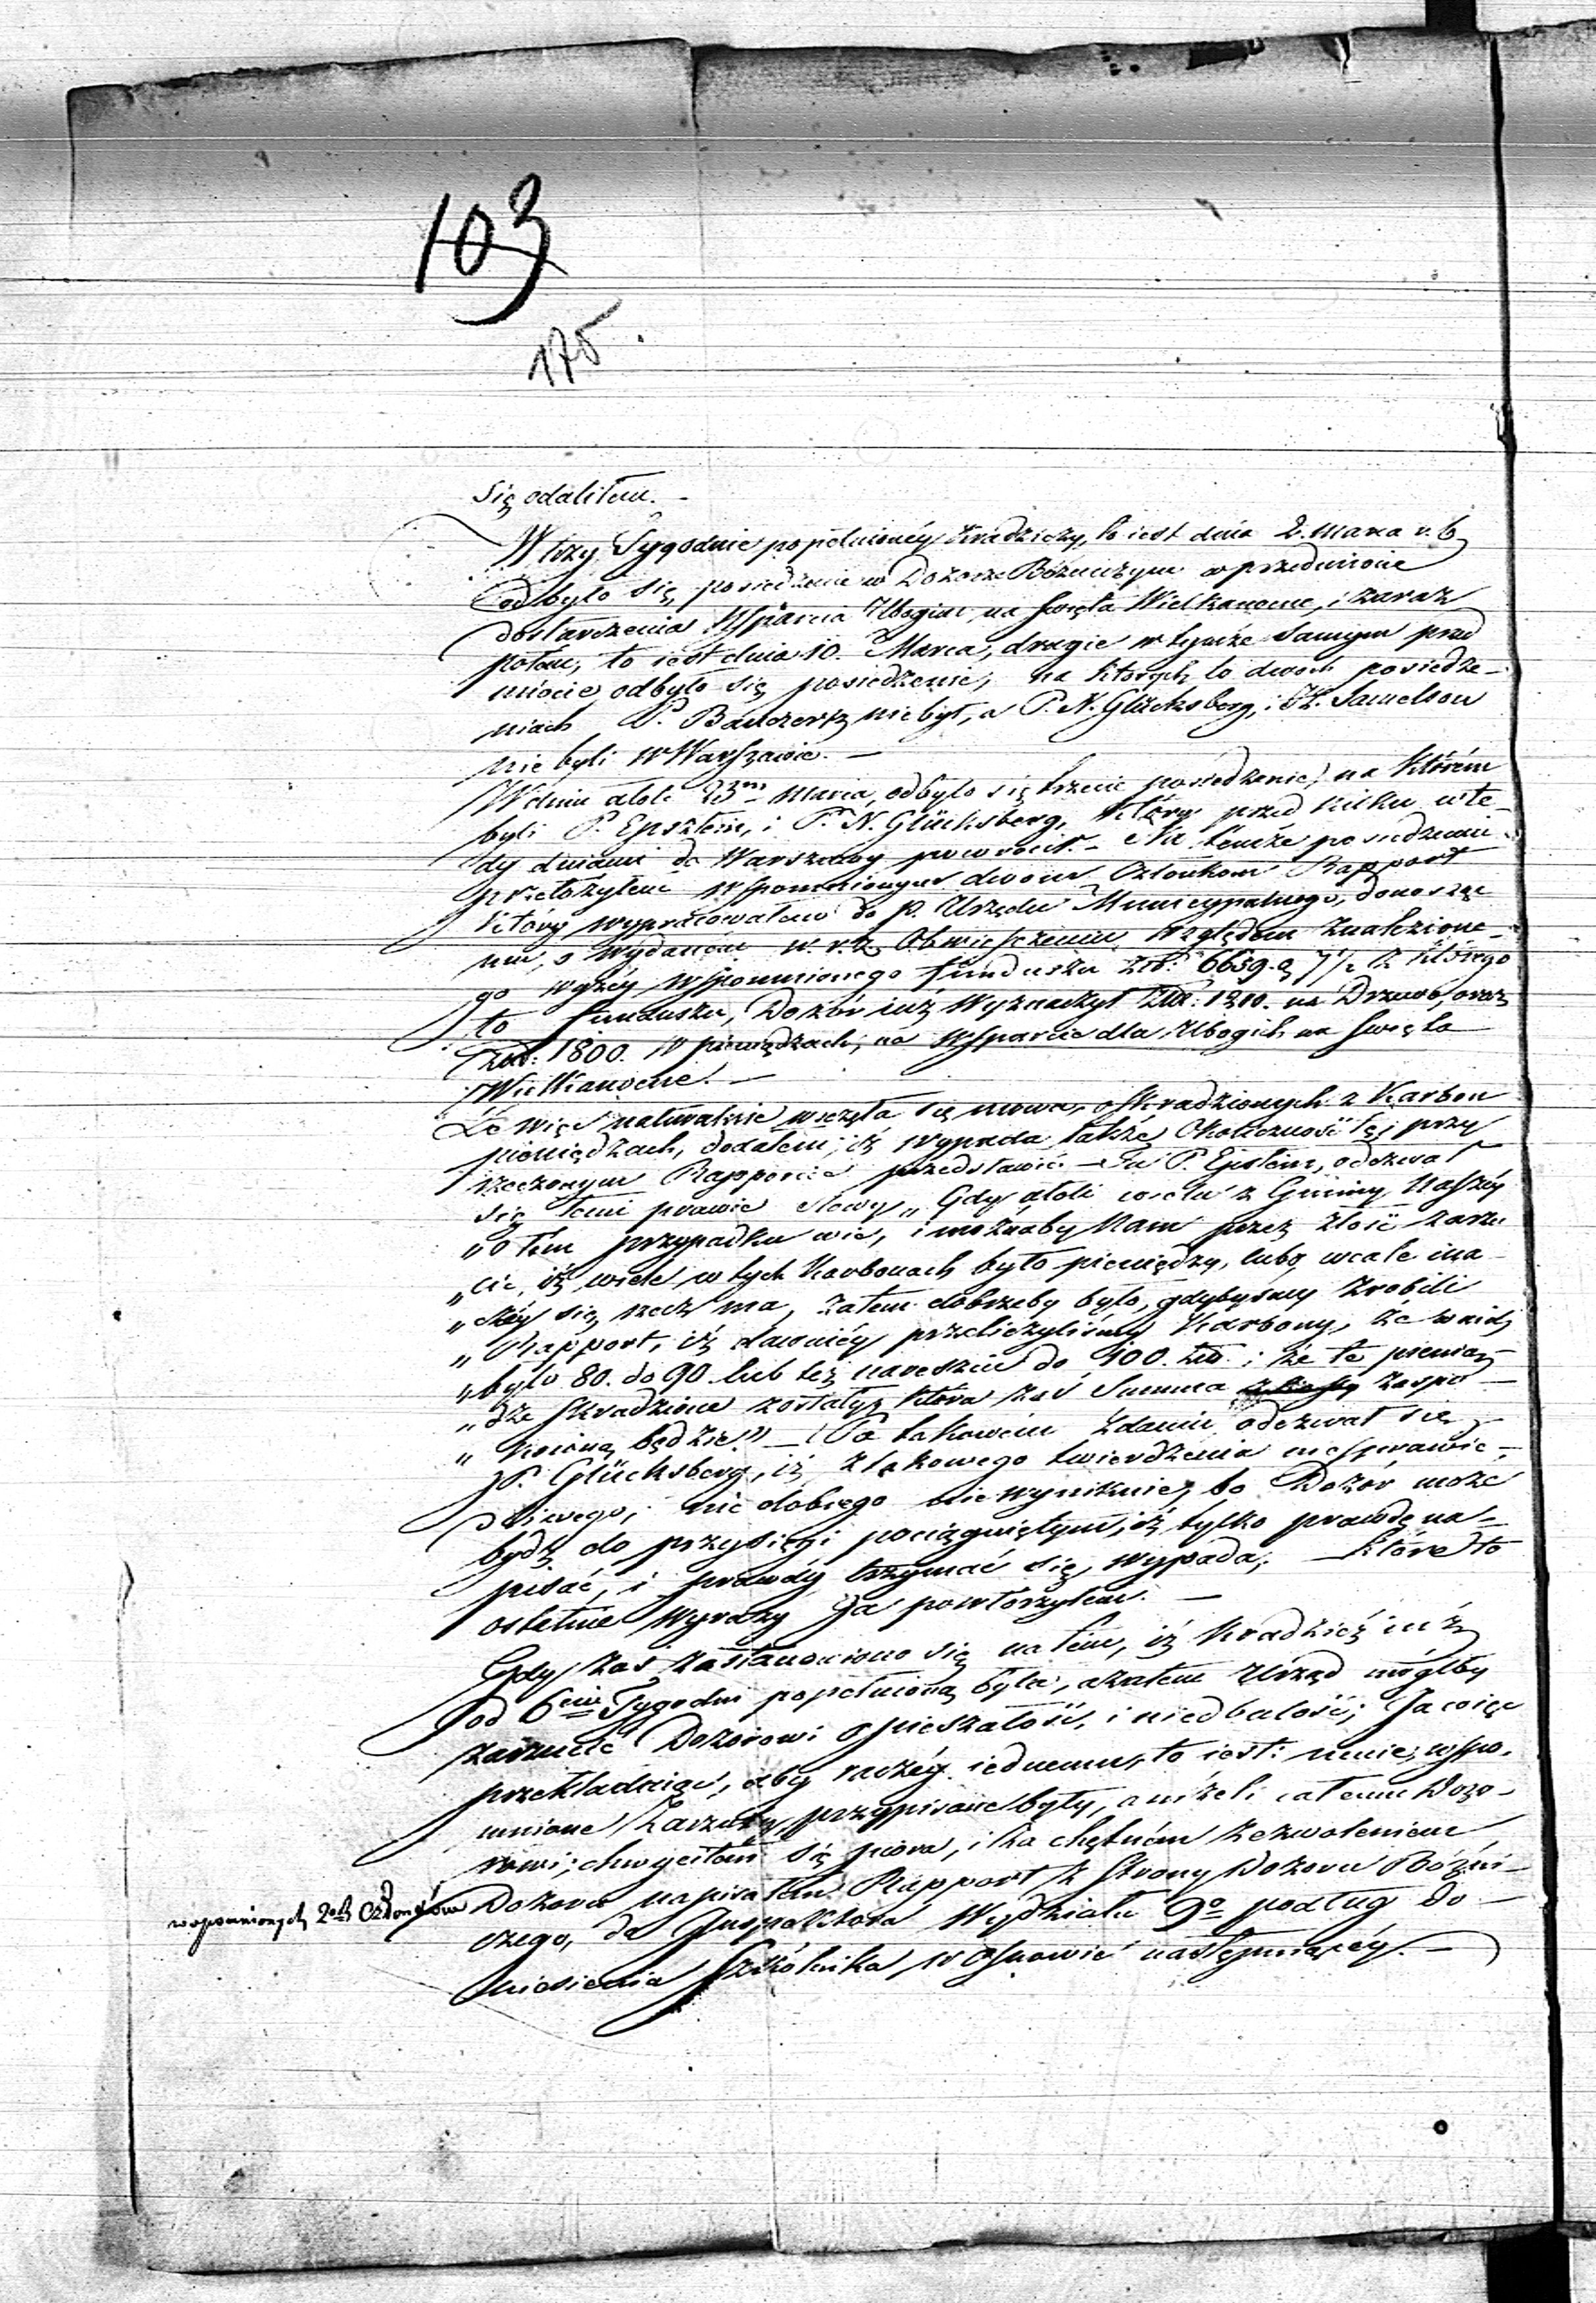 103
175.
Się odaliłem. -
W trzy Tygodnie popełnionéy kradzieży, to iest dnia 2. Marca r. b.
odbyło się, posiedzenie w Dozorze Bóżniczym w przedmiocie
dostarczenia Wsparcia Ubogim na Święta Wielkanocne, i zaraz
potém, to iest dnia 10. Marca, drugie w tymże samym przed
miocie odbyło się posiedzenie, na których to dwóch posiedze-
niach P. Bauczerfz niebył, a P. N. Glücksberg, i H. Samelson
nie byli w Warszawie. —
W dniu atoli 23m Marca, odbyło się trzecie posiedzenie, na którém
byli P. Epsztein, i P. N. Glücksberg, który przed kilku wte-
dy dniami do Warszawy powrócił. - Na temże posiedzeniu
przełożyłem wspomnionym dwom Członkom Rapport
który wypracowałem do P. Urzędu Municypalnego, donoszą
mu, o wydaném w. r. z. Obwieszczeniu względem znalezione-
go wyżéy wspomnionego funduszu Złp: 6659. g 7½ z którego
to funduszu, Dozór iuż wyznaczył Złp: 1210. na Drzewo, oraz
Złp: 1800. w pieniędzach, na wsparcie dla Ubogich na Święta
Wielkanocne. —
Że więc naturalnie wszczęła się mowa, o skradzionych z Karbon
pieniędzach, dodałem, iż wypada także Okoliczność tę, przy
rzeczonym Rapporcie przedstawić. — Tu P. Epstein, odezwał
się temi prawie słowy „Gdy atoli wielu z Gminy Naszéy
„o tém przypadku wie, i możnaby Nam przez złość zarzu
„cić, iż wiele w tych Karbonach było pieniędzy, lubo wcale ina-
„czéy się rzecz ma, zatem dobrzeby było, gdybyśmy zrobili
„Rapport, iż dawniéy przeliczyliśmy Karbony, że w nich
„było 80. do 90. lub też nareszcie do 100. złp. i że te pienią-
„dze skradzione zostały, która zaś Summa zaspo-
„koioną będzie." — Po takowém zdaniu odezwał się
P. Glücksberg, iż z takowego twierdzenia niesprawie-
dliwego, nic dobrego nie wyniknie, bo Dozór może
bydź do przysięgi pociągniętym, iż tylko prawdę na-
pisać, i prawdy trzymać się, wypada; — które to
ostatnie wyrazy Ja powtórzyłem. —
Gdy zaś zastanowiono się na tém, iż kradzież iuż
od 6ciu Tygodni popełnioną była, a zatem Urząd mógłby
zarzucić Dozorowi opieszałość, i niedbałość; Ja więc
przekładaiąc, aby raczéy iednemu, to iest: mnie, wspo-
mnione Zarzuty, przypisane były, aniżeli całemu Dozo-
rowi; chwyciłem się pióra, i za chętném zezwoleniem
wspomnionych 2ch Członków Dozoru napisałem Rapport z Strony Dozoru Bóżni-
czego, do Inspektora Wydziału 9o podług do-
niesienia Szkólnika, w Osnowie następuiącéy. —